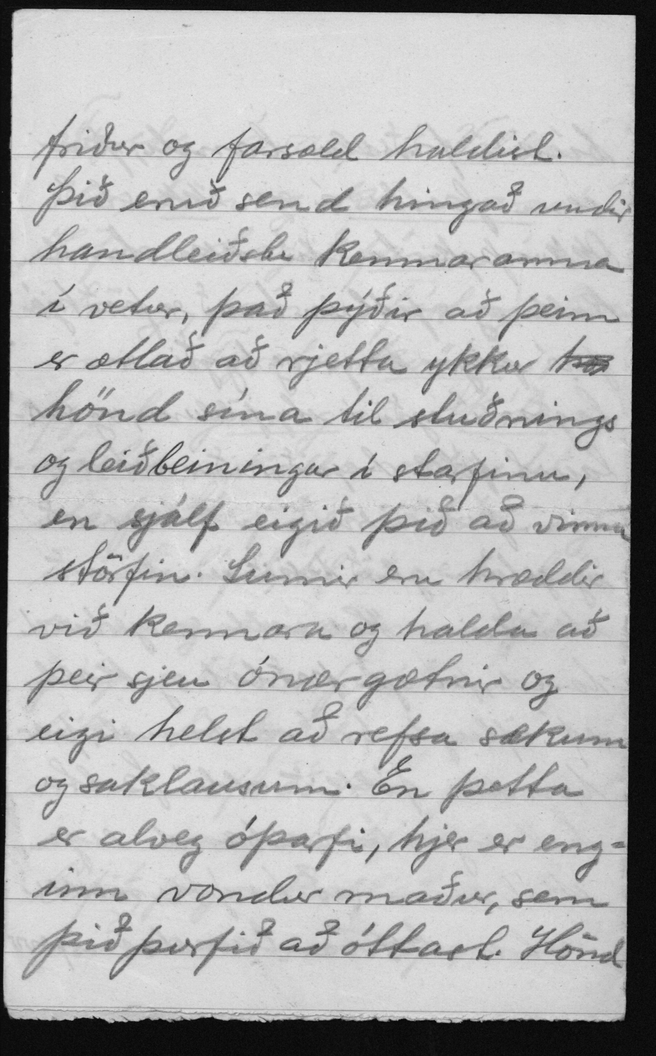 friður og farsæld haldist.
Þið eruð send hingað undir
handleiðslu kennaranna
í vetur, það þýðir að þeim
er ætlað að rjetta ykkur
hönd sína til stuðnings
og leiðbeiningar í starfinu,
en sjálf eigið þið að vinna
störfin. Sumir eru hræddir
við kennara og halda að
þeir sjeu ónærgætnir og
eigi helst að refsa sekum
og saklausum. En þetta
er alveg óþarfi, hjer er eng=
inn vondur maður, sem
þið þurfið að óttast. Hönd